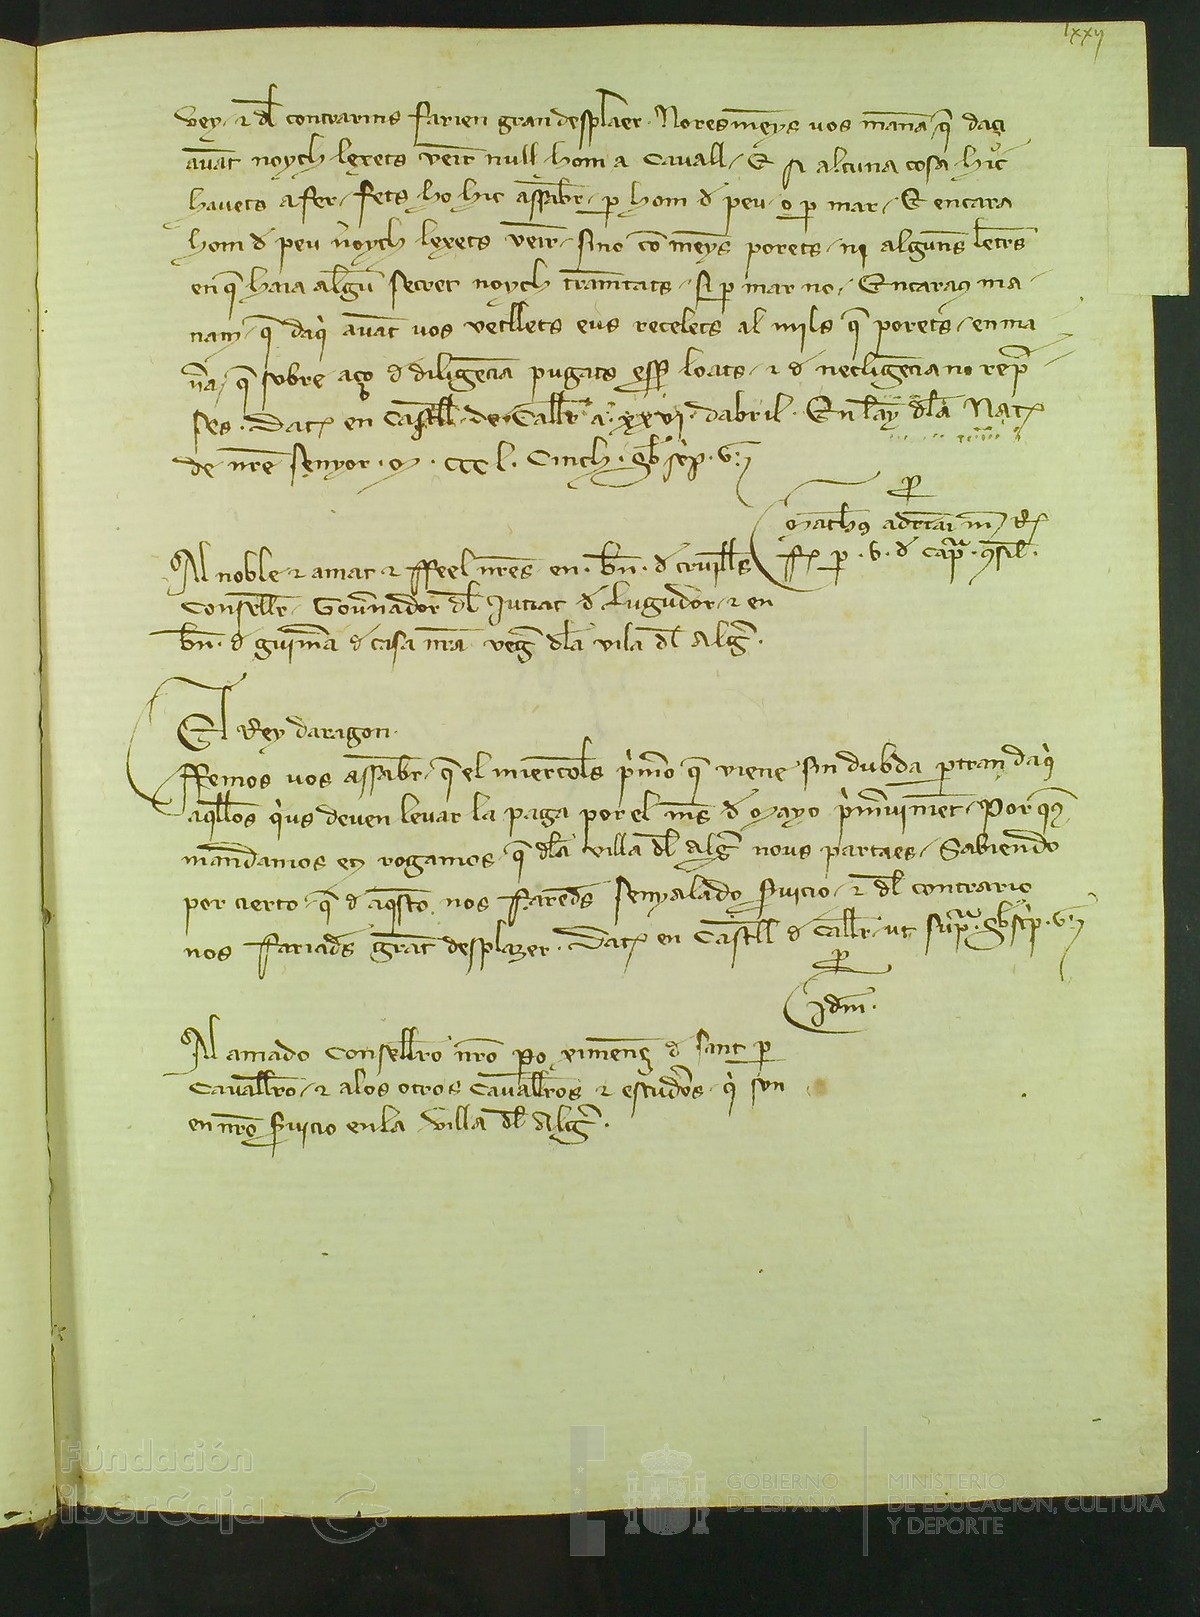 lxxij
vey. & dl contrarius farien gran desplaer. Noresmẽys vos manã q̃ daçi
auãt noych lexets venir null hom a Cauall. E si alcuna cosa hic
hauets afer. fets ho hic assab̃r. p hom d peu o p mar. E encara
hom d peu noych lexets venir. sino cõ mẽys porets. ni algun̄s letr̄s
en q̃ haia algũ secret noych tram̃tats. si p mar no. Encaraus ma
nam. q̃ daqi auãt vos vetllets eus recelets al mils q̃ porets. en ma
ñra. q̃ sobre aço d diligẽcia pugats ess̃ loats. & d necligẽcia no rep̃
ses. Dat̃ en Castell de Call̃r a xxvi. dabril. En lay dla Nat̃
de nr̃e senyor. M. CCC l. Cinch. gb̃ sc̃p. v.
p
Matheus adriãi m̃ R̃
ff̃ p. v. d cap̃ra. 9sil̃.
Al noble & amat & ffeel nr̃es en. bñ. d cruyll̃s
Conseller. Gou̅nador dl Jutiat d Lugudor. & en
bñ. d guim̃a d casa nr̃a veg̃ dla vila dl Alg̃.
El Rey daragon.
ffemos vos assab̃r. q̃ el miercol̃s p̃mo q̃ viene sin dubda p̃tran daqi
aqllos qius deuen leuar la paga por el m̃s d Mayo p̃mvinẽt. Por q̃
mandamos e rogamos. q̃ dla villa dl Alg̃ nous partaes. Sabiendo
por cierto. q̃ d aq̃sto nos fareds̃ senyalado s̃uicio. & dl contrario
nos fariad̃s grãt desplazer. Dat̃ en Castell d Call̃r. ut sup̃ra. gb̃ sc̃p. v.
p
Idm̃.
Al amado Conseller̃o nr̃o po ximenẽ d sant p
Cauall̃ro. & alos otros Cauall̃ros & escud̃os. qi son
en nr̃o s̃uicio en la villa dl Alg̃.
Fundación
iberCaja
GOBIERNO
DE ESPAÑA
MINISTERIO
DE EDUCACIÓN, CULTURA
Y DEPORTE